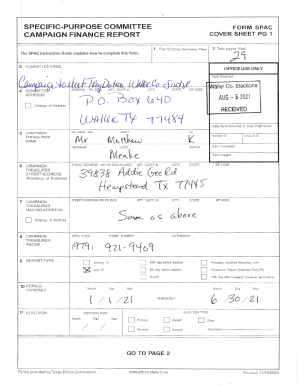 SPECIFIC-PURPOSE COMMITTEE FORM SPAC
CAMPAIGN FINANCE REPORT COVER SHEET PG 1
The SPAC Instruction Guide explains how to complete this form.
1 Filer ID (Ethics Commission Filers)
2 Total pages filed:
29
3 COMMITTEE NAME
OFFICE USE ONLY
Date Received
Waller Co. Elections
AUG - 6 2021
RECEIVED
4 COMMITTEE ADDRESS
ADDRESS / PO BOX; APT / SUITE #; CITY; STATE; ZIP CODE
Change of Address
P.O. Box 640
Waller TX 77484
Date Hand-delivered or Date Postmarked
5 CAMPAIGN TREASURER NAME
MS / MRS / MR FIRST MI
Mr Matthew K
NICKNAME LAST SUFFIX
Menke
Receipt #
Amount $
Date Processed
Date Imaged
6 CAMPAIGN TREASURER STREET ADDRESS
(Residence or Business)
STREET ADDRESS (NO PO BOX PLEASE); APT / SUITE #; CITY; STATE; ZIP CODE
39838 Addie Gee Rd
Hempstead TX 77445
7 CAMPAIGN TREASURER MAILING ADDRESS
Change of Address
STREET ADDRESS OR PO BOX; APT / SUITE #; CITY; STATE; ZIP CODE
Same as above
8 CAMPAIGN TREASURER PHONE
AREA CODE PHONE NUMBER EXTENSION
(979) 921-9409
9 REPORT TYPE
January 15
July 15
30th day before election
8th day before election
Runoff
10 PERIOD COVERED
Month Day Year
1/1/21 THROUGH 6/30/21
11 ELECTION
ELECTION DATE
Month Day Year
ELECTION TYPE
Primary
Runoff
Other
General
Special
GO TO PAGE 2
Forms provided by Texas Ethics Commission
www.ethics.state.tx.us